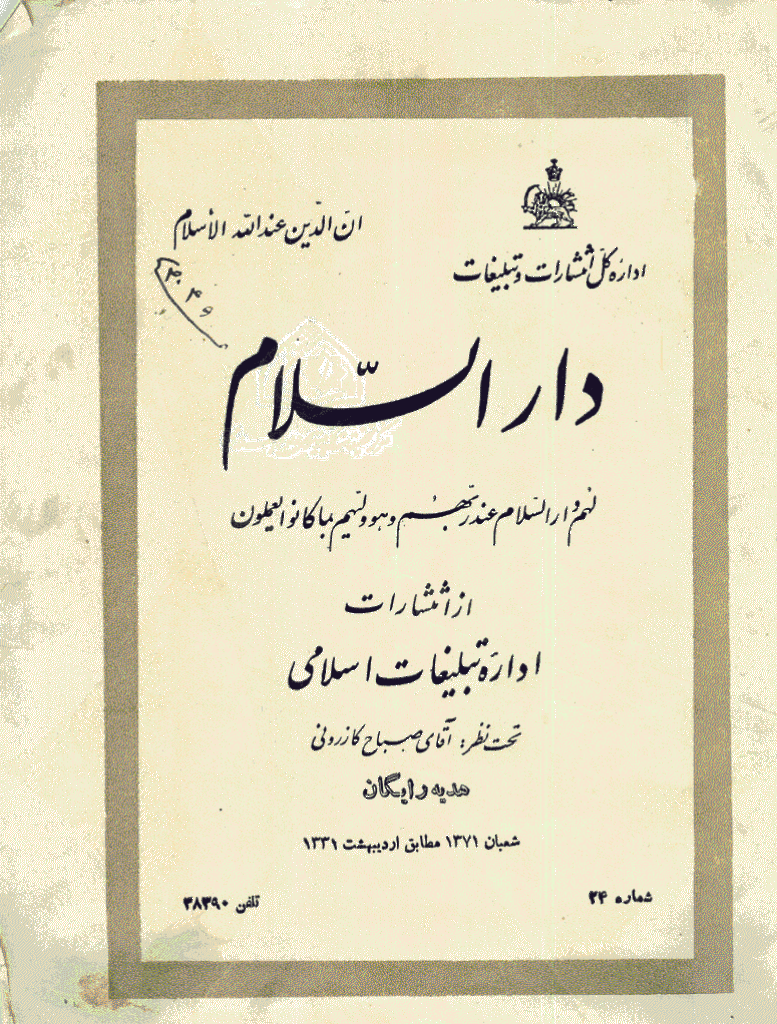 انّ الدّین عند اللّه الأسلام
ادارهٔ کل انتشارات و تبلیغات
دار السّلام
لهم دار السّلام عند ربّهم و هو ولیّهم بما کانوا یعملون
از انتشارات
ادارهٔ تبلیغات اسلامی
تحت نظر: آقای صباح کازرونی
هدیه رایگان
شعبان ۱۳۷۱ مطابق اردیبهشت ۱۳۳۱
شماره ۲۴
تلفن ۳۸۳۹۰